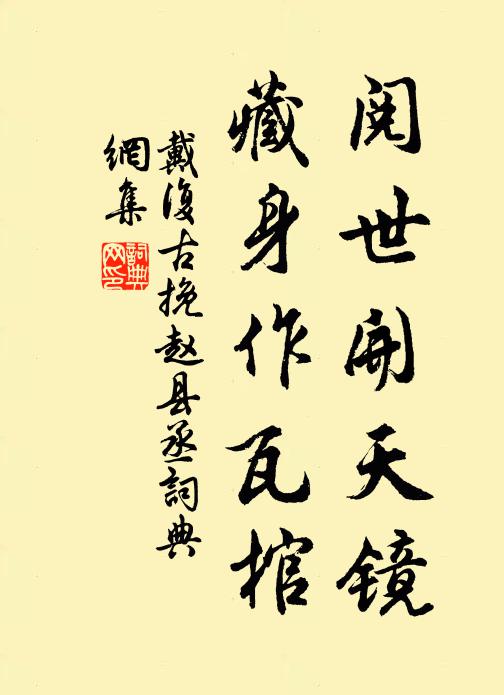 阅世开天镜
藏身作瓦棺
戴復古挽赵县丞詞典
網集
詞典
网印